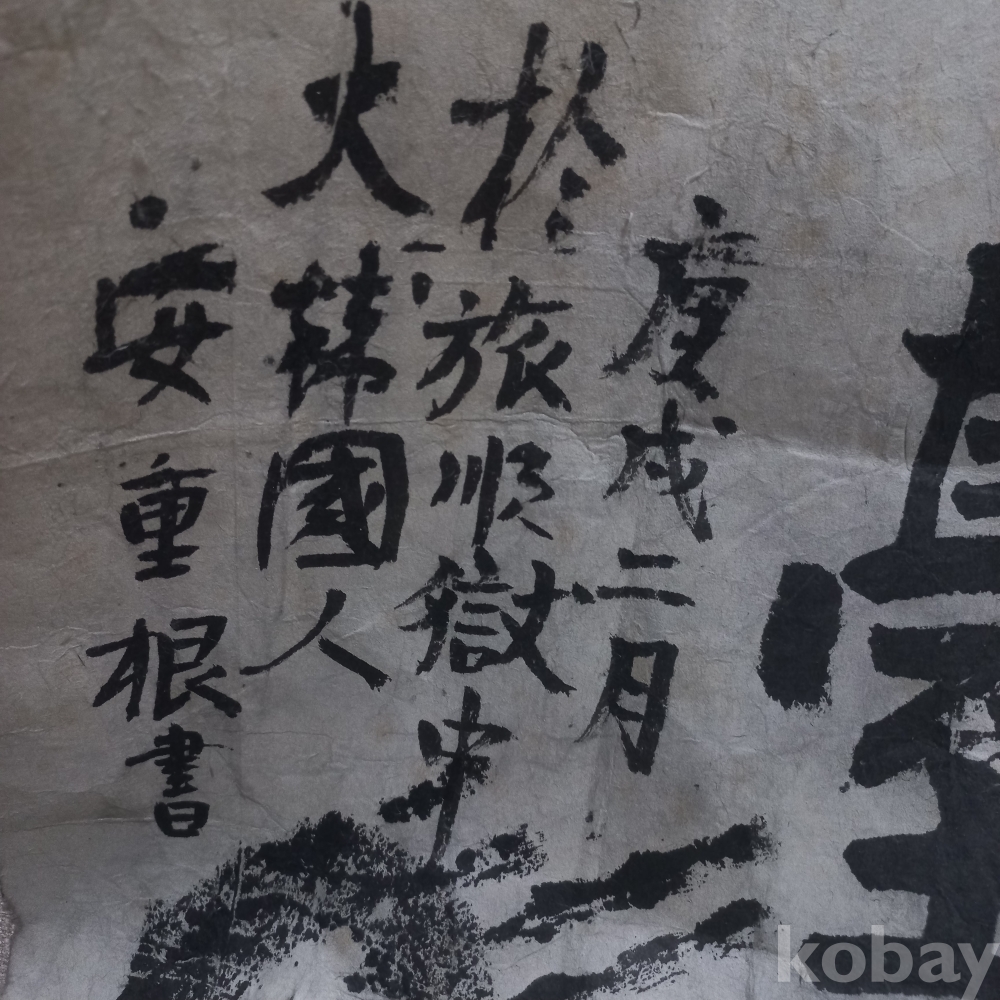 庚戌二月
於旅順獄中
大韓國人
安重根書
kobay